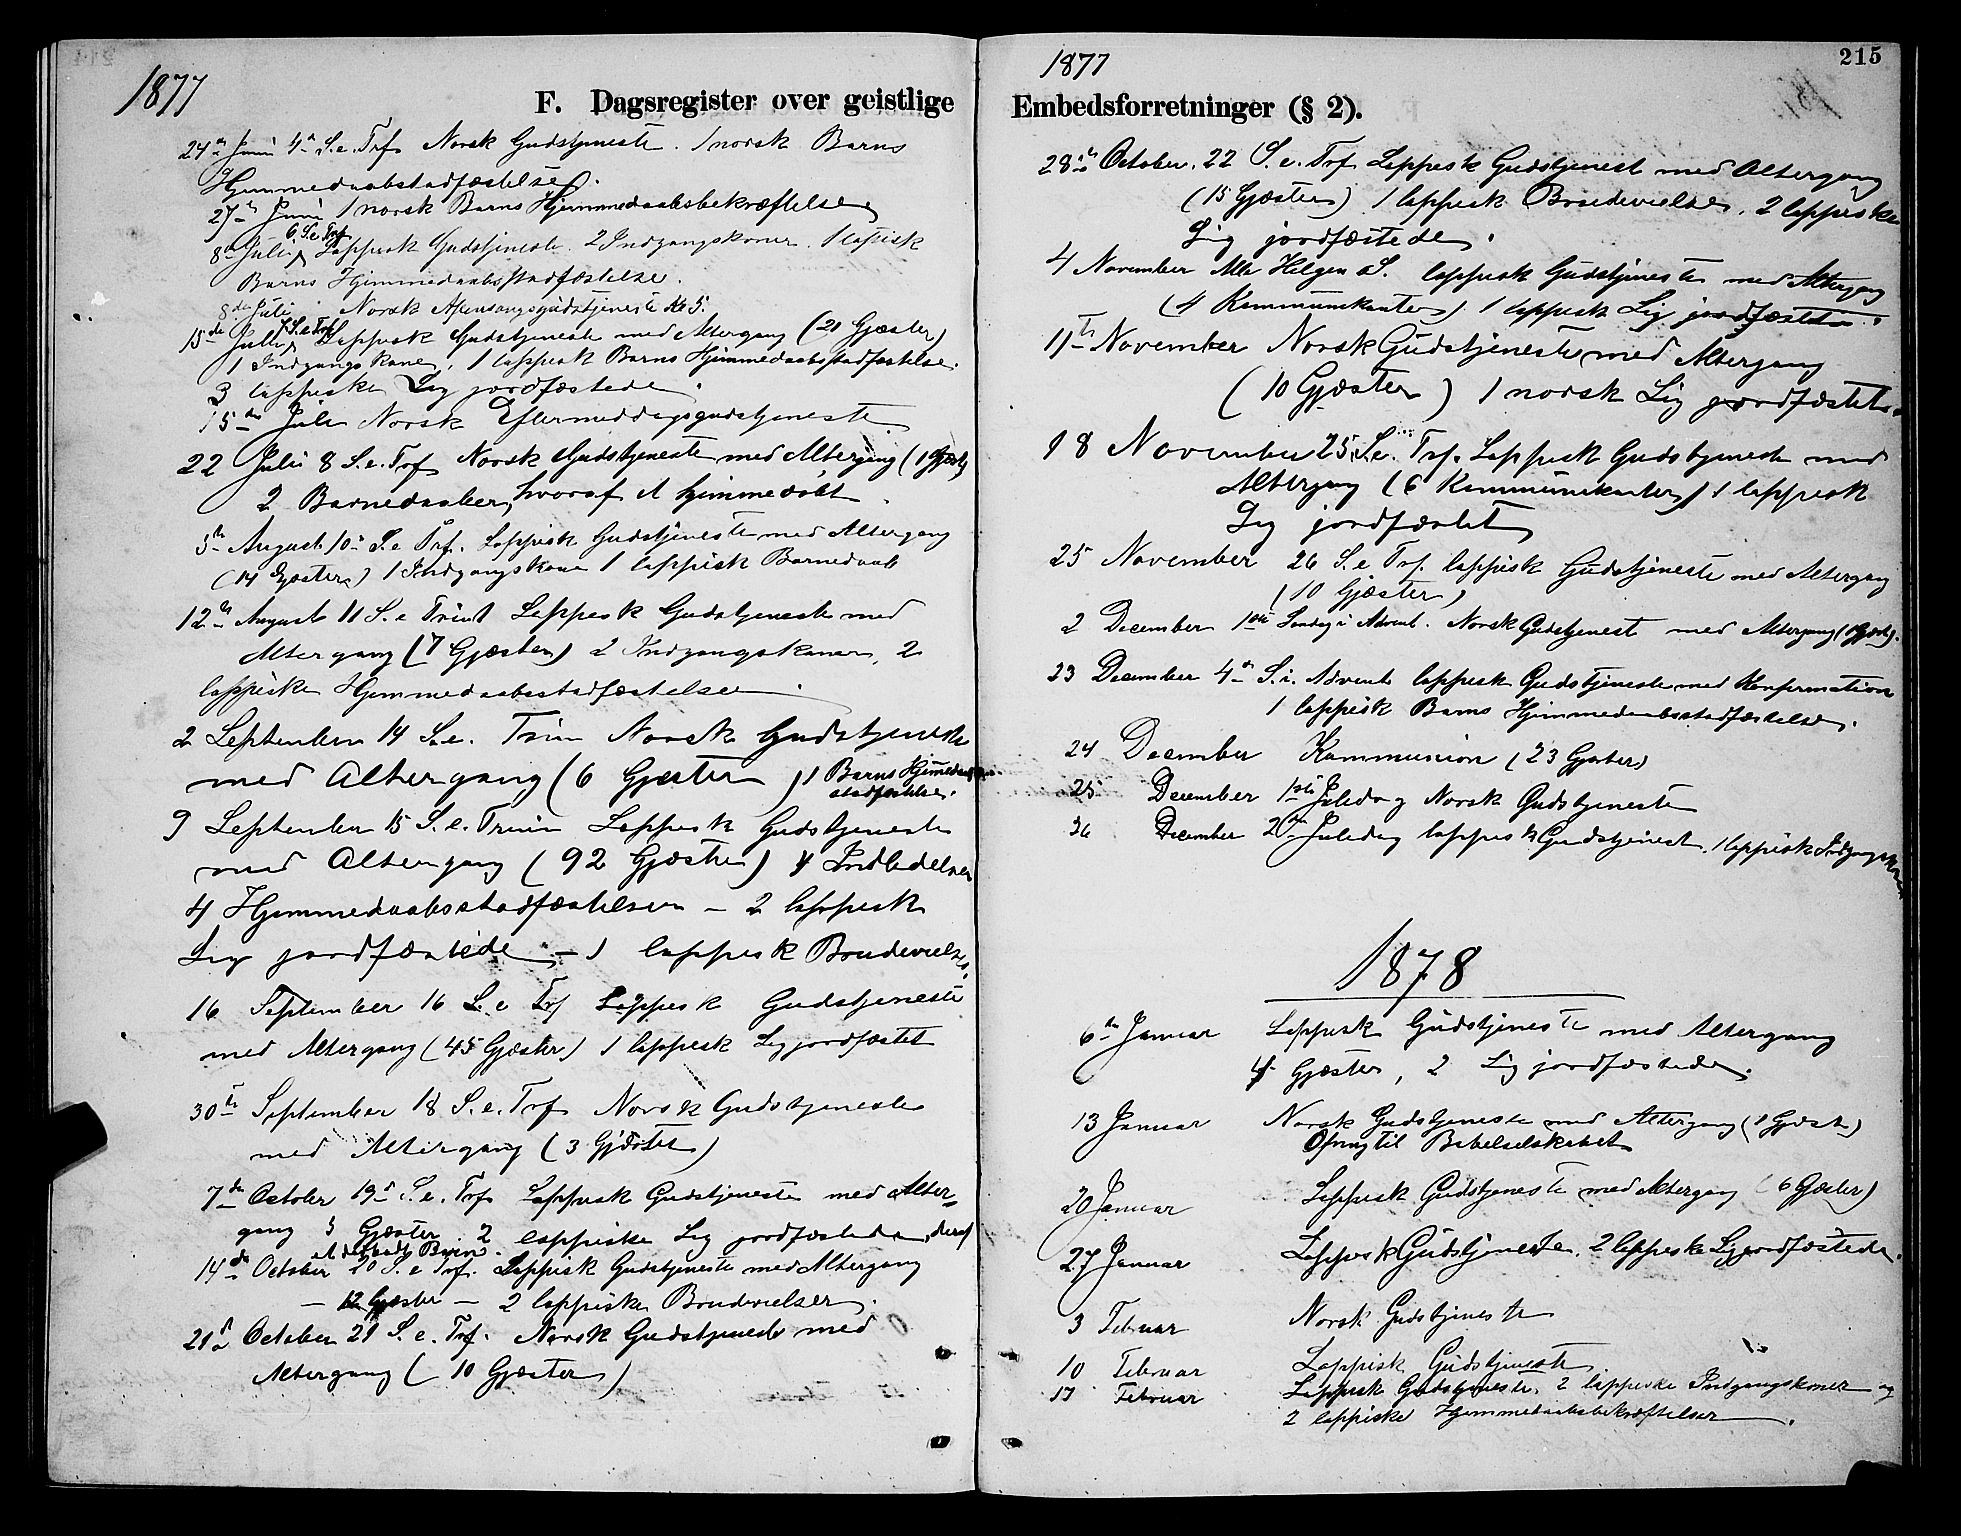 1877
F. Dagsregister over geistlige
24de Juni 4de S. e. Trf Norsk Gudstjeneste. 1 norsk Barns
Hjemmedaabstadfæstelse.
27de Juni 1 norsk Barns Hjemmedaabsbekræftelse
6 S. e. Trf
8de Juli Lappisk Gudstjeneste. 2 Indgangskoner. 1 lapisk
Barns Hjemmedaabsstadfæstelse.
8de Juli Norsk Aftensangsgudstjeneste Kl 5.
7 S. e. Trf
15de Juli Lappisk Gudstjeneste med Altergang (21 Gjæster)
1 Indgangskone, 1 lappisk Barns Hjemmedaabsstadfæstelse.
3 lappiske Lig jordfæstede.
15de Juli Norsk Eftermiddagsgudstjeneste
22 Juli 8 S. e. Trf Norsk Gudstjeneste med Altergang (1 Gjæst)
2 Barnedaaber, hvoraf et hjemmedøbt.
5te August 10de S. e Trf. Lappisk Gudstjeneste med Altergang
(14 Gjæster) 1 Indgangskone 1 lappisk Barnedaab
12te August 11 S. e Trinit Lappisk Gudstjeneste med
Altergang (7 Gjæster) 2 Indgangskoner, 2
lappiske Hjemmedaabsstadfæstelser.
2 September 14 S. e. Trin Norsk Gudstjeneste
med Altergang (6 Gjæster) 1 Barns Hjemmedaabs
stadfæstelse.
9 September 15 S. e. Trin Lappisk Gudstjeneste
med Altergang (92 Gjæster) 4 Indledelser
4 Hjemmedaabsstadfæstelser – 2 lappisk
Lig jordfæstede – 1 lappisk Brudevielse.
16 September 16 S. e Trf Lappisk Gudstjeneste
med Altergang (45 Gjæster) 1 lappisk Lig jordfæstet
30te September 18 S. e. Trf Norsk Gudstjeneste
med Altergang (3 Gjæster)
7de October 19de S. e. Trf Lappisk Gudstjeneste med Alter-
gang 5 Gjæster. 2 lappiske Lig jordfæstede, deraf
et dødfødt Barn.
14de October 20 S. e Trf. Lappisk Gudstjeneste med Altergang
– 12 Gjæster – 2 lappiske Brudevielser.
21de October 21 S. e. Trf. Norsk Gudstjeneste med
Altergang (10 Gjæster)
1877
215
Embedsforretninger (§ 2).
28de October. 22 S. e. Trf Lappisk Gudstjenest med Altergang
(15 Gjæster) 1 lappisk Brudevielse, 2 lappiske
Lig jordfæstede.
4 November Alle Helgen S. lappisk Gudstjeneste med Altergang
(4 Kommunikanter) 1 lappisk Lig jordfæstet.
11te November Norsk Gudstjeneste med Altergang
(10 Gjæster) 1 norsk Lig jordfæstet.
18 November 25 S. e. Trf. Lappisk Gudstjeneste med
Altergang (6 Kommunikanter) 1 lappisk
Lig jordfæstet
25 November 26 S. e Trf. lappisk Gudstjeneste med Altergang
(10 Gjæster)
2 December 1ste Søndag i Advent. Norsk Gudstjenest med Altergang (1 Gjæst).
23 December 4de S. i. Advent lappisk Gudstjeneste med Konfirmation
1 lappisk Barns Hjemmedaabsstadfæstelse.
24 December Kommunion (23 Gjæster)
25 December 1ste Juledag Norsk Gudstjeneste
26 December 2den Juledag lappisk Gudstjenest. 1 lappisk Indgangskone
1878
6te Januar Lappisk Gudstjeneste med Altergang
4 Gjæster, 2 Lig jordfæstede.
13 Januar Norsk Gudstjeneste med Altergang (1 Gjæst)
Ofring til Bibelselskabet
20 Januar Lappisk Gudstjeneste med Altergang (6 Gjæster)
27 Januar Lappisk Gudstjeneste. 2 lappiske Lig jordfæstede.
3 Februar Norsk Gudstjeneste
10 Februar Lappisk Gudstjeneste.
17 Februar Lappisk Gudstjeneste. 2 lappiske Indgangskoner og
2 lappiske Hjemmedaabsbekræftelser.